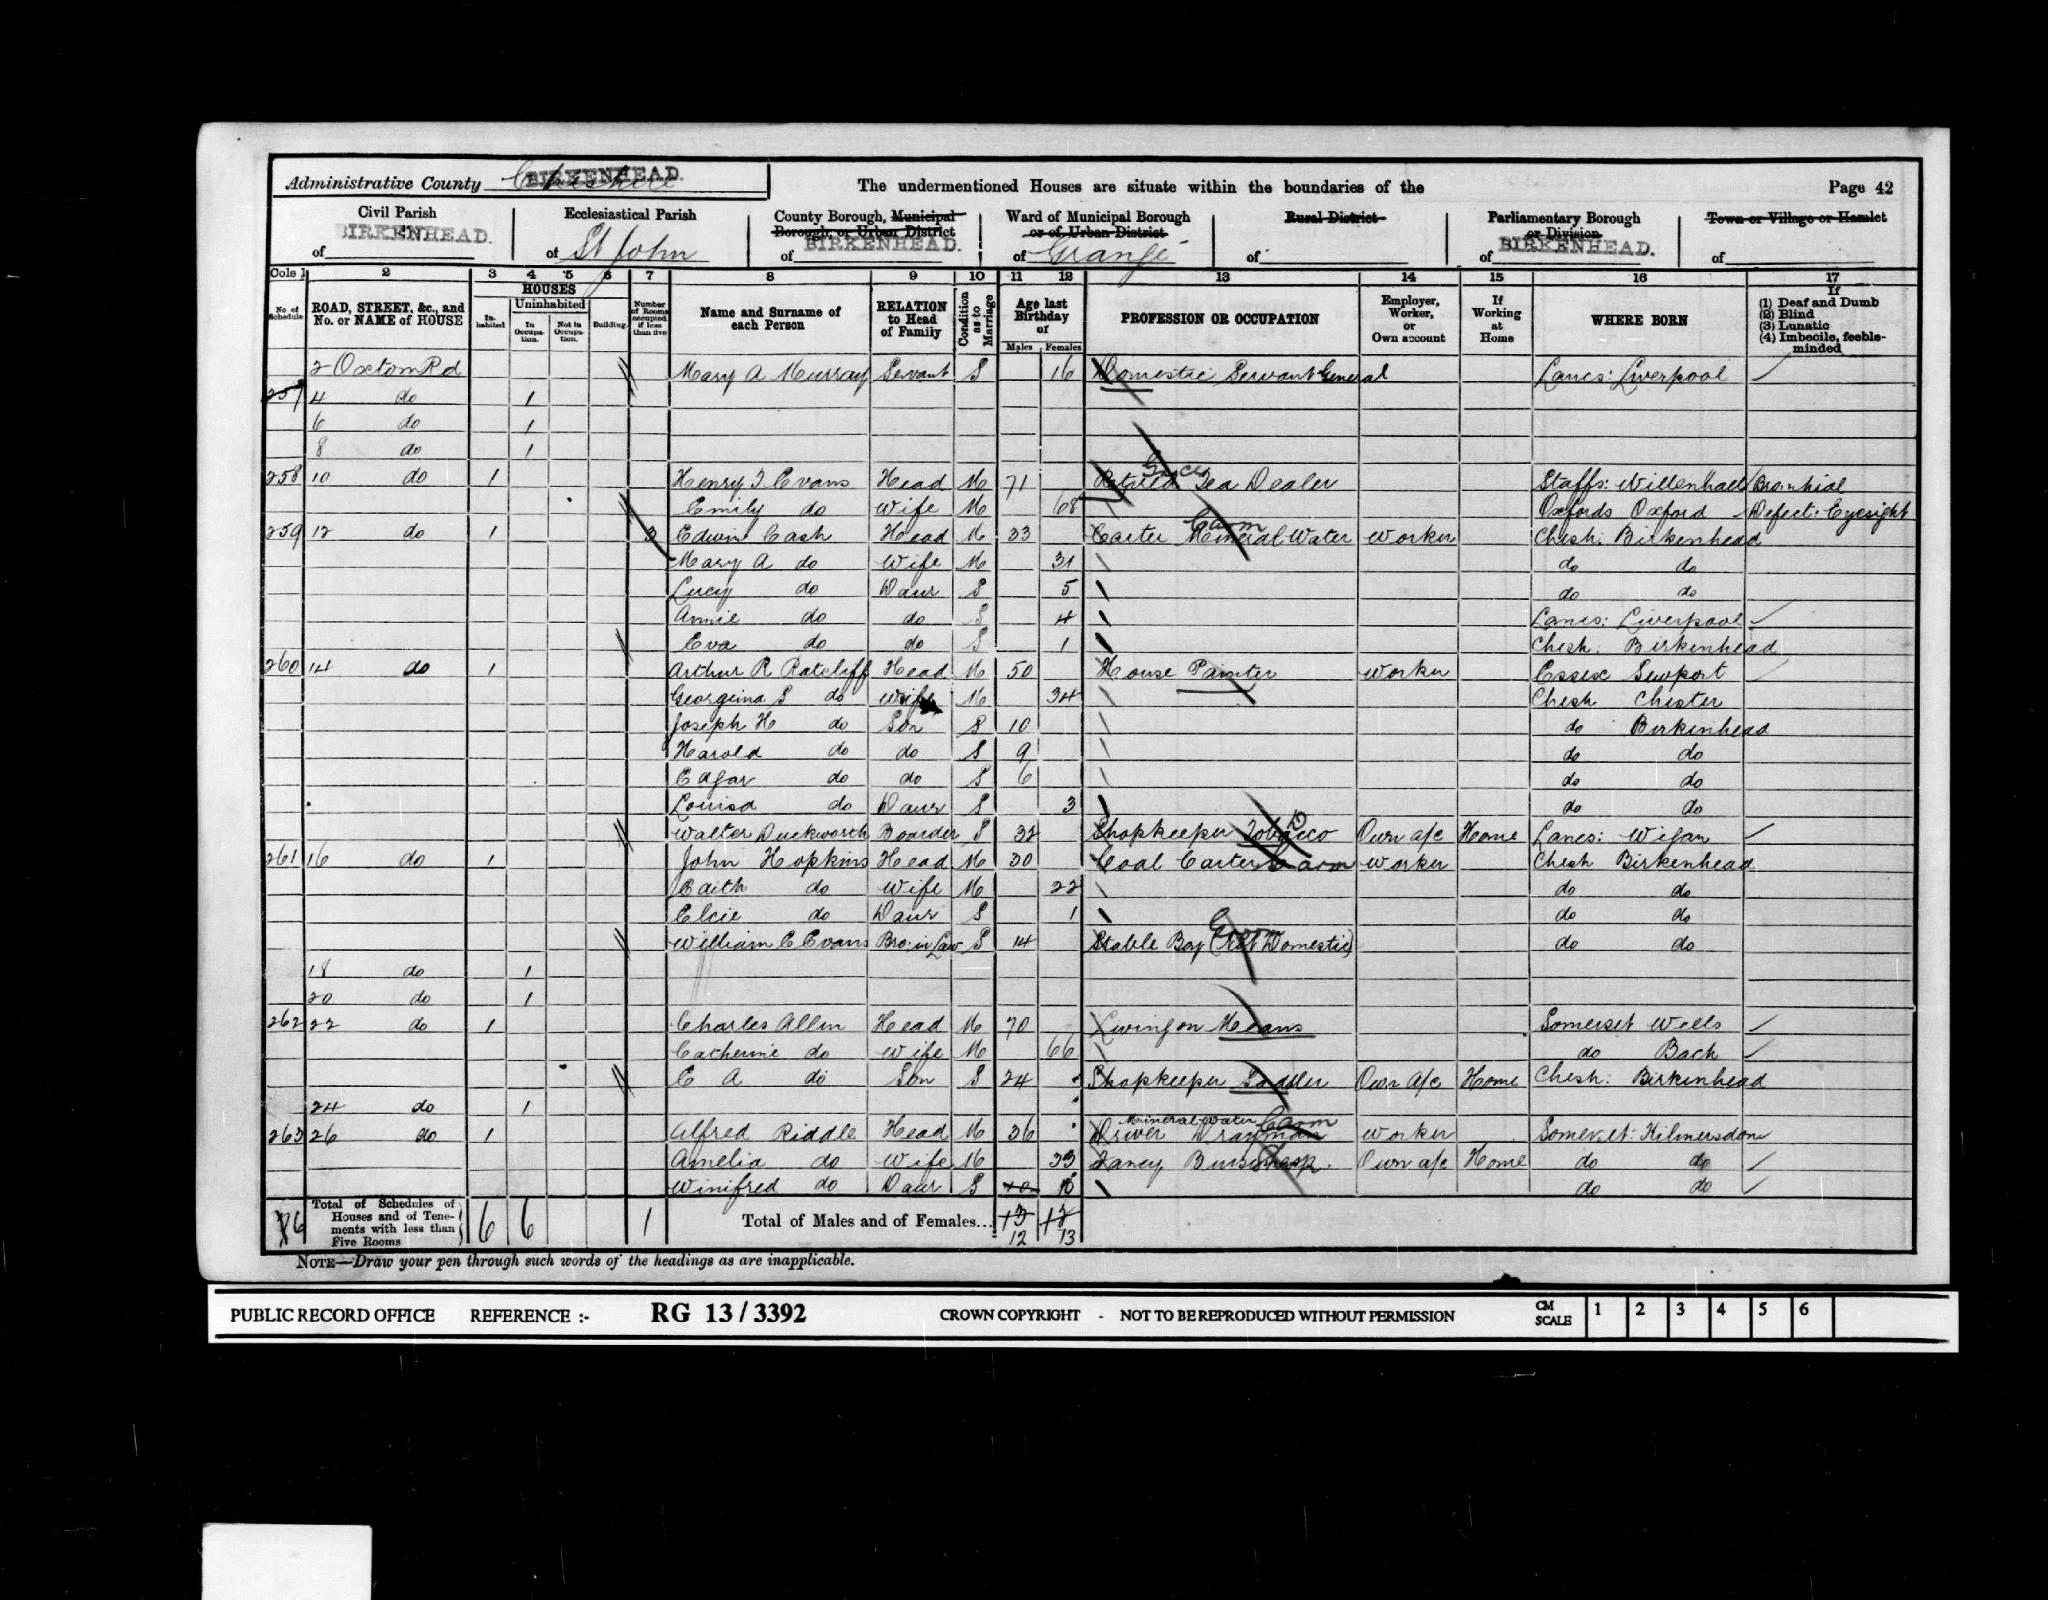 Administrative County Cheshire BIRKENHEAD.
The undermentioned Houses are situate within the boundaries of the
Page 42
Civil Parish of BIRKENHEAD.
Ecclesiastical Parish of St John
County Borough, Municipal Borough, or Urban District of BIRKENHEAD.
Ward of Municipal Borough or of Urban District of Grange
Rural District of
Parliamentary Borough or Division of BIRKENHEAD.
Town or Village or Hamlet of
Cols 1 2 3 4 5 6 7 8 9 10 11 12 13 14 15 16 17
No. of Schedule
ROAD, STREET, &c., and No. or NAME of HOUSE
HOUSES
Inhabited
Uninhabited
In Occupation.
Not in Occupation.
Building.
Number of Rooms occupied if less than five
Name and Surname of each Person
RELATION to Head of Family
Condition as to Marriage
Age last Birthday of
Males Females
PROFESSION OR OCCUPATION
Employer, Worker, or Own account
If Working at Home
WHERE BORN
If
(1) Deaf and Dumb
(2) Blind
(3) Lunatic
(4) Imbecile, feeble-minded
2 Oxton Rd Mary A Murray Servant S 16 Domestic Servant General Lancs: Liverpool
257 4 do 1
6 do 1
8 do 1
258 10 do 1 Henry T Evans Head M 71 Retired Tea Dealer Grocer Staffs: Willenhall Bronchial
Emily do Wife M 68 Oxfords Oxford Defect: Eyesight
259 12 do 1 3 Edwin Cash Head M 33 Carter Mineral Water Carm Worker Chesh: Birkenhead
Mary A do Wife M 31 do do
Lucy do Daur S 5 do do
Annie do do S 4 Lancs: Liverpool
Eva do do S 1 Chesh: Birkenhead
260 14 do 1 Arthur R Ratcliff Head M 50 House Painter Worker Essex Newport
Georgina S do Wife M 34 Chesh Chester
Joseph H do Son S 10 do Birkenhead
Harold do do S 9 do do
Edgar do do S 6 do do
Louisa do Daur S 3 do do
Walter Duckworth Boarder S 32 Shopkeeper Tobacco D Own a/c Home Lancs: Wigan
261 16 do 1 John Hopkins Head M 30 Coal Carter Carm Worker Chesh Birkenhead
Edith do Wife M 22 do do
Elcie do Daur S 1 do do
William E Evans Bro: in Law S 14 Stable Boy (Not Domestic) Groom do do
18 do 1
20 do 1
262 22 do 1 Charles Allen Head M 70 Living on Means Somerset Wells
Catherine do Wife M 66 do Bath
E A do Son S 24 Shopkeeper Saddler Own a/c Home Chesh: Birkenhead
24 do 1
263 26 do 1 Alfred Riddle Head M 36 Driver Mineral Water Drayman Carm Worker Somerset: Kilmersdon
Amelia do Wife M 33 Fancy Business Shop. Own a/c Home do do
Winifred do Daur S 10 10 do do
6 Total of Schedules of Houses and of Tenements with less than Five Rooms 6 6 1 Total of Males and of Females... 13 12 12 13
NOTE—Draw your pen through such words of the headings as are inapplicable.
PUBLIC RECORD OFFICE REFERENCE :- RG 13 / 3392 CROWN COPYRIGHT - NOT TO BE REPRODUCED WITHOUT PERMISSION CM SCALE 1 2 3 4 5 6